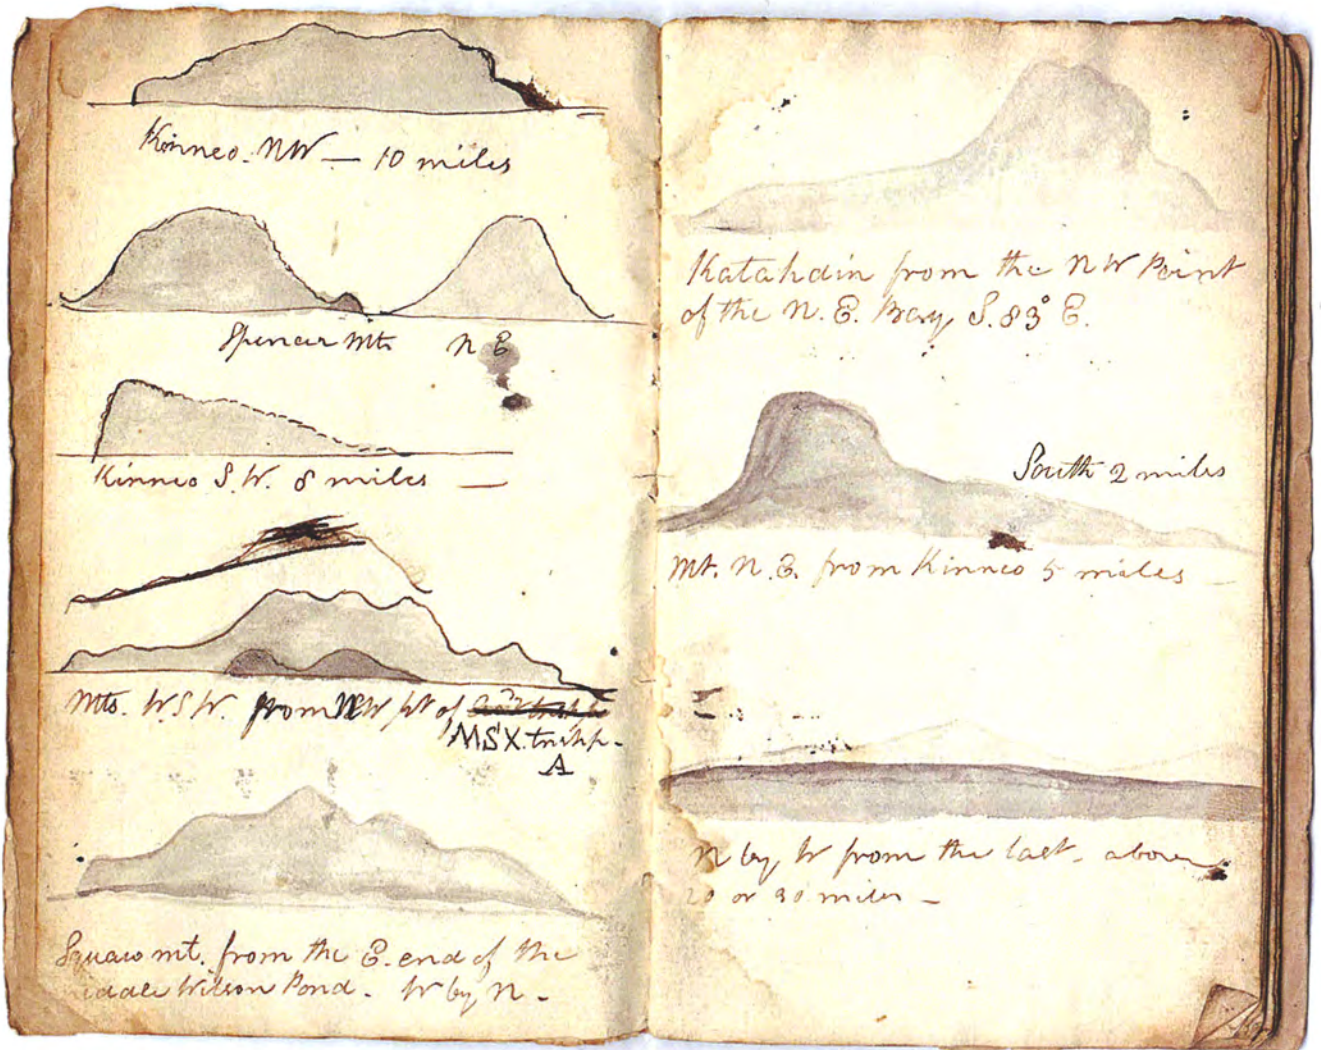 Kinneo. NW — 10 miles
Spencer Mts N E
Kinneo S. W. 8 miles —
Mts. W. S W. from NW pt of
MSX. tnshp.
A
Squaw mt. from the E. end of the
middle Wilson Pond. W by N -
Katahdin from the N W Point
of the N. E. Bay S. 83° E.
South 2 miles
Mt. N. E. from Kinneo 5 miles —
N by W from the last - above
20 or 30 miles -